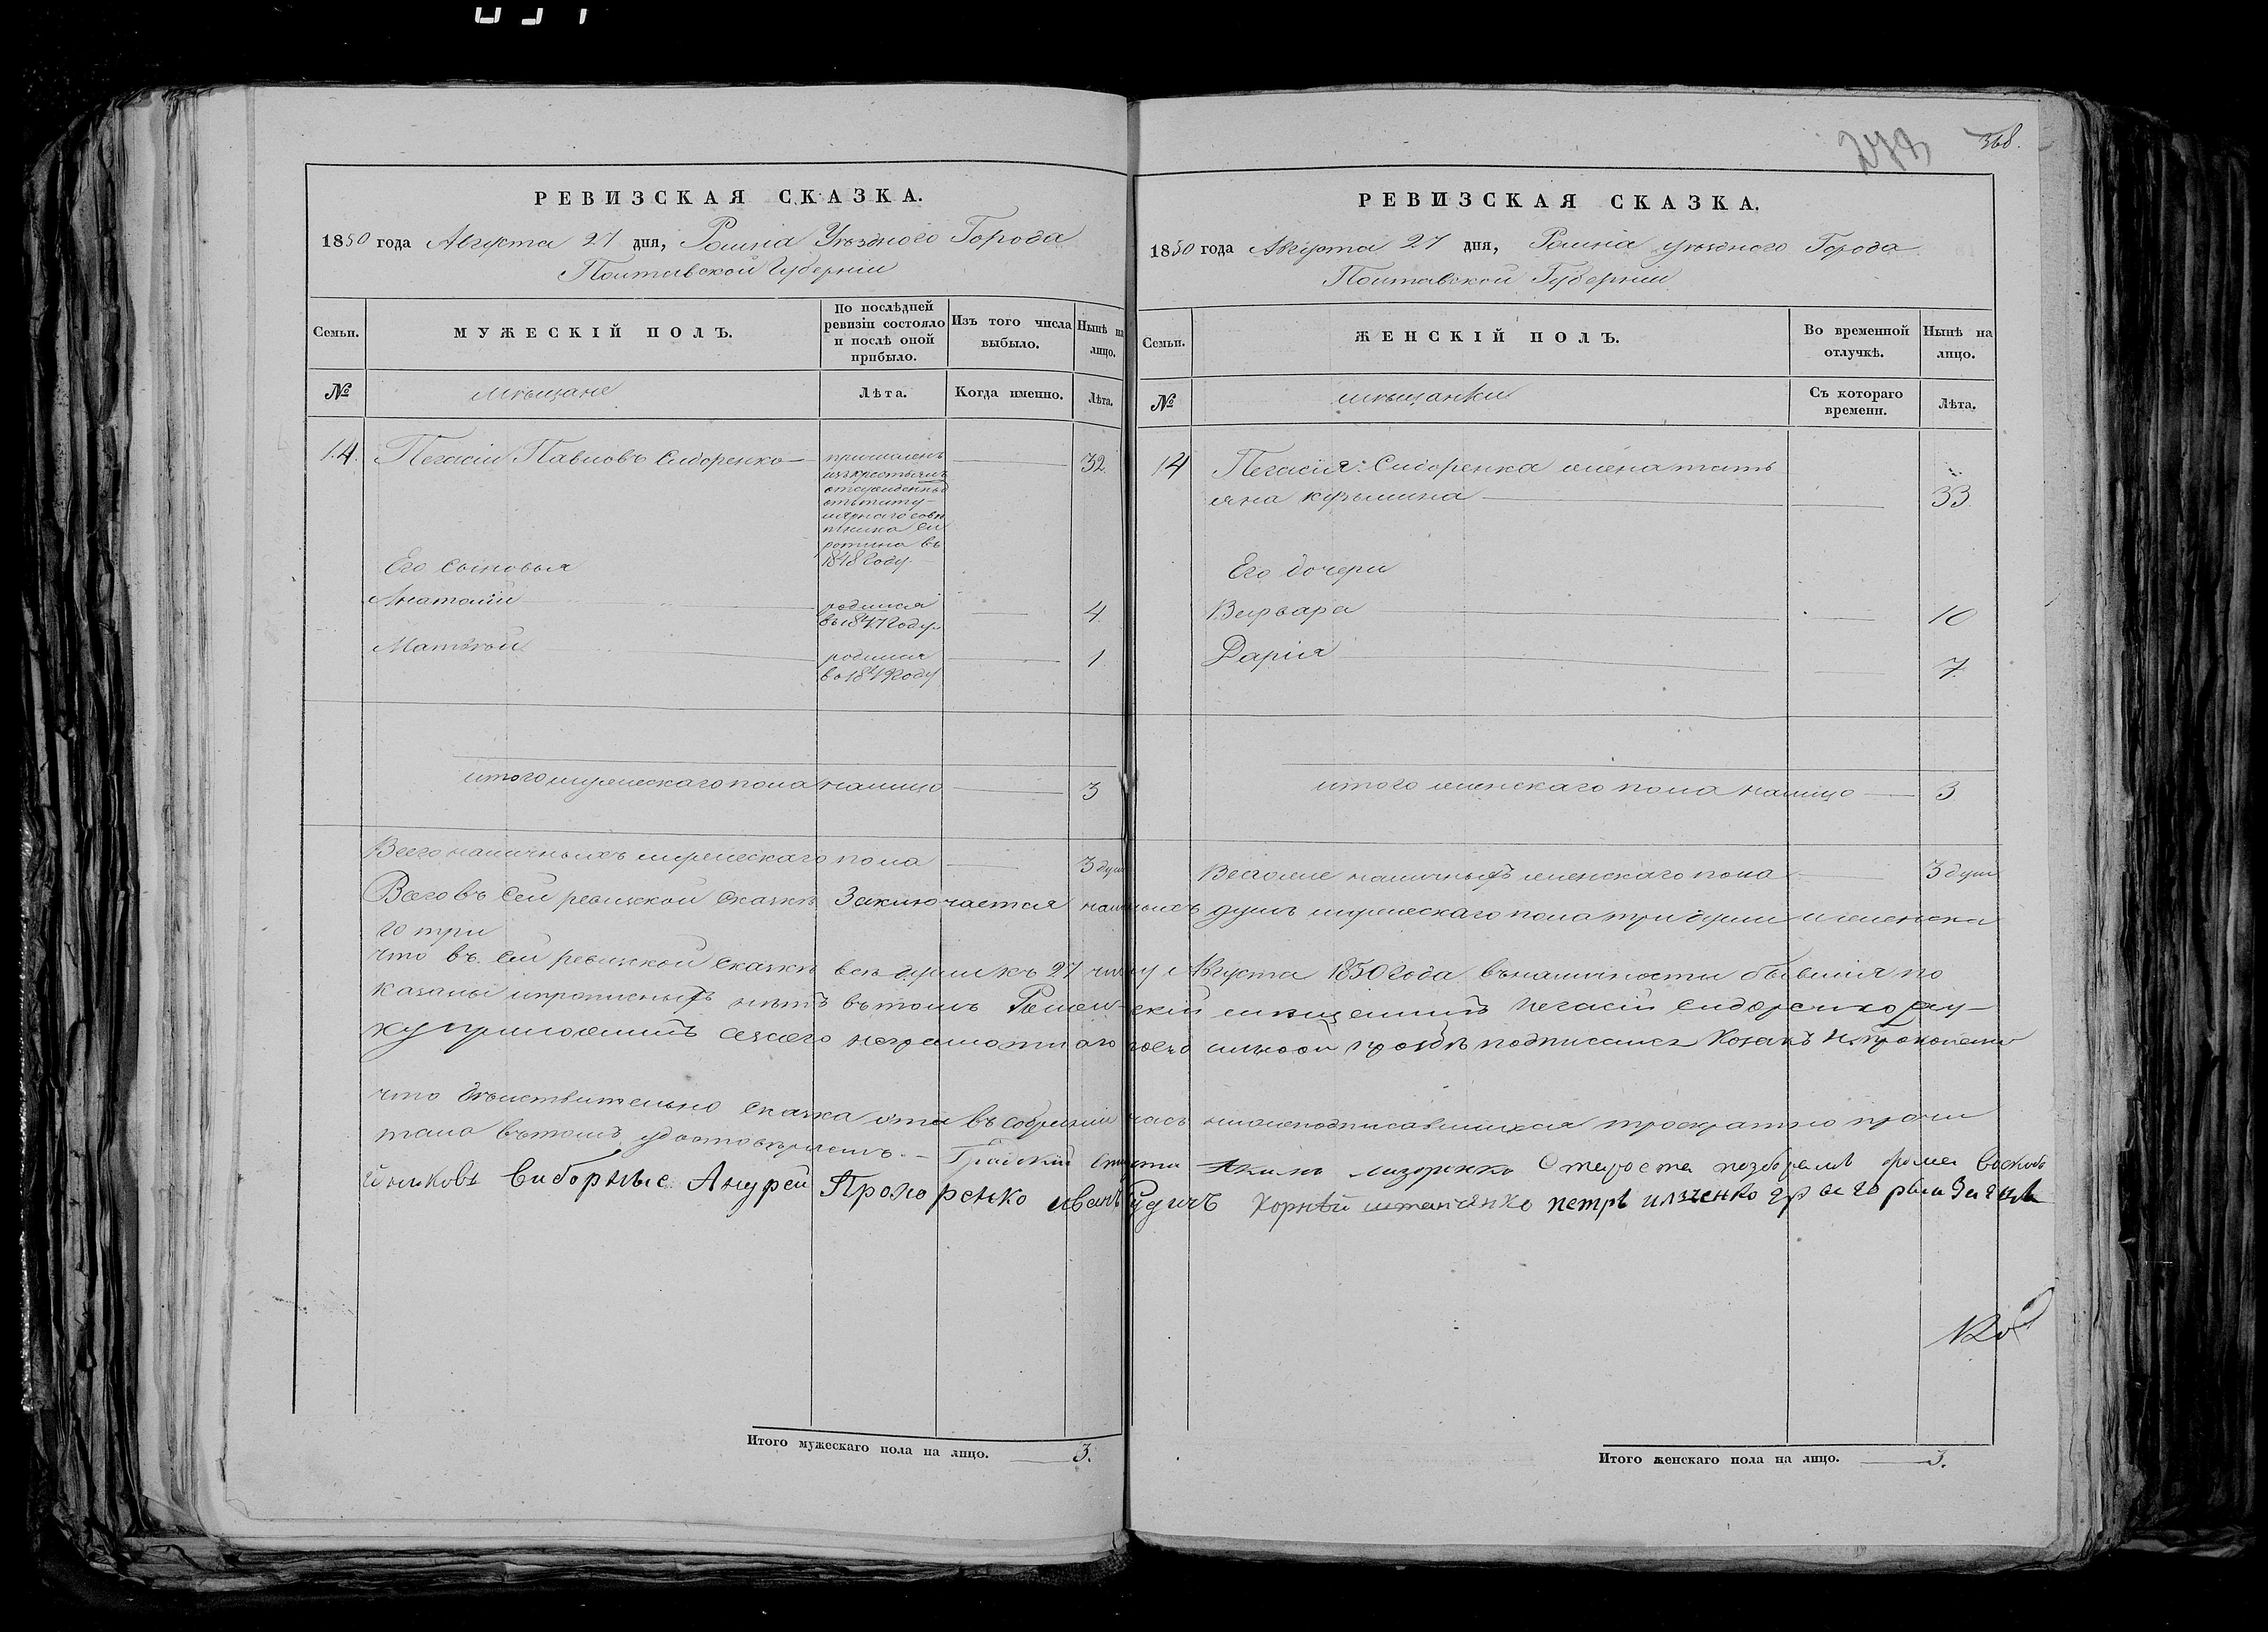 368.
РЕВИЗСКАЯ СКАЗКА.
1850 года Августа 27 дня, Ромна Уѣзднаго Города
Полтавской Губерніи
Семьи.
МУЖЕСКІЙ ПОЛЪ.
По послѣдней ревизіи состояло и послѣ оной прибыло.
Изъ того числа выбыло.
Нынѣ на лицо.
№
мѣщане
Лѣта.
Когда именно.
Лѣта.
14. Пегасій Павловъ Сидоренко
причисленъ
изъ крестьянъ
отсужденный
отъ титу-
лярнаго совѣ
тника Си
ротина въ
1848 году.
32.
Его сыновья
Анатолій
родился
въ 1847 году
4.
Матвѣй
родился
въ 1849 году
1
итого мужескаго пола налицо 3
Всего наличныхъ мужескаго пола 3 души
РЕВИЗСКАЯ СКАЗКА.
1850 года Августа 27 дня, Ромна уѣзднаго Города
Полтавской Губерніи
Семьи.
ЖЕНСКІЙ ПОЛЪ.
Во временной отлучкѣ.
Нынѣ на лицо.
№
мѣщанки
Съ котораго времени.
Лѣта.
14 Пегасія Сидоренка жена тать
яна кузьмина 33.
Его дочери
Варвара 10
Дарія 7.
итого женскаго пола налицо 3
Всего же наличныхъ женскаго пола 3 души
Всего въ сей ревизской сказкѣ заключается наличныхъ душъ мужескаго пола три души и женска
го три
что въ сей ревизской сказкѣ всѣ души къ 27 числу Августа 1850 года въ наличности бывшія по
казаны и прописныхъ нѣтъ въ томъ Роменскій мѣщанинъ Пегасій Сидоренко ру-
ку приложилъ а за него неграмотнаго его личной прозбѣ подписался Козакъ
что дѣйствительно сказка эта въ собраніи насъ нижеподписавшихся троекратно прочи
тана въ томъ удостовѣряемъ. – Градскій староста
Выборные Андрей Прохоренко иванъ Рудичъ Корнѣй петръ
Итого мужескаго пола на лицо. 3.
Итого женскаго пола на лицо. 3.